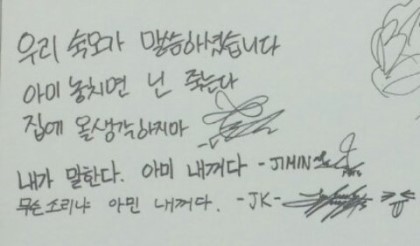 우리 숙모가 말씀하셨습니다
아미 놓치면 넌 죽는다
집에 올생각하지마
내가 말한다. 아미 내꺼다 -JIMIN
무슨소리냐 아민 내꺼다. -JK- 큐